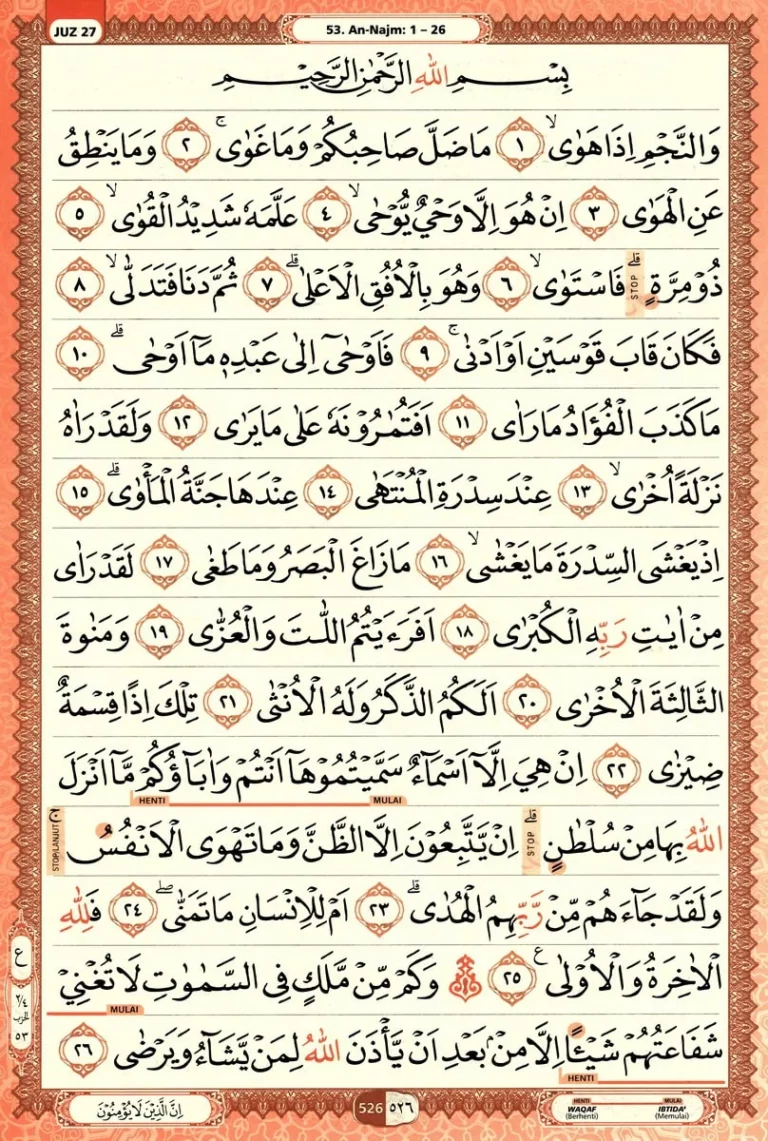 JUZ 27
53. An-Najm: 1 – 26
بِسْمِ اللّٰهِ الرَّحْمٰنِ الرَّحِيْمِ
وَالنَّجْمِ اِذَا هَوٰىۙ ١ مَا ضَلَّ صَاحِبُكُمْ وَمَا غَوٰىۚ ٢ وَمَا يَنْطِقُ
عَنِ الْهَوٰى ٣ اِنْ هُوَ اِلَّا وَحْيٌ يُّوْحٰىۙ ٤ عَلَّمَهٗ شَدِيْدُ الْقُوٰىۙ ٥
ذُوْ مِرَّةٍۗ STOP فَاسْتَوٰىۙ ٦ وَهُوَ بِالْاُفُقِ الْاَعْلٰىۗ ٧ ثُمَّ دَنَا فَتَدَلّٰىۙ ٨
فَكَانَ قَابَ قَوْسَيْنِ اَوْ اَدْنٰىۚ ٩ فَاَوْحٰىٓ اِلٰى عَبْدِهٖ مَآ اَوْحٰىۗ ١٠
مَا كَذَبَ الْفُؤَادُ مَا رَاٰى ١١ اَفَتُمٰرُوْنَهٗ عَلٰى مَا يَرٰى ١٢ وَلَقَدْ رَاٰهُ
نَزْلَةً اُخْرٰىۙ ١٣ عِنْدَ سِدْرَةِ الْمُنْتَهٰى ١٤ عِنْدَهَا جَنَّةُ الْمَأْوٰىۗ ١٥
اِذْ يَغْشَى السِّدْرَةَ مَا يَغْشٰىۙ ١٦ مَا زَاغَ الْبَصَرُ وَمَا طَغٰى ١٧ لَقَدْ رَاٰى
مِنْ اٰيٰتِ رَبِّهِ الْكُبْرٰى ١٨ اَفَرَءَيْتُمُ اللّٰتَ وَالْعُزّٰى ١٩ وَمَنٰوةَ
الثَّالِثَةَ الْاُخْرٰى ٢٠ اَلَكُمُ الذَّكَرُ وَلَهُ الْاُنْثٰى ٢١ تِلْكَ اِذًا قِسْمَةٌ
ضِيْزٰى ٢٢ اِنْ هِيَ اِلَّآ اَسْمَاۤءٌ سَمَّيْتُمُوْهَآ اَنْتُمْ وَاٰبَاۤؤُكُمْ مَّآ اَنْزَلَ
HENTI MULAI
اللّٰهُ بِهَا مِنْ سُلْطٰنٍۗ STOP اِنْ يَّتَّبِعُوْنَ اِلَّا الظَّنَّ وَمَا تَهْوَى الْاَنْفُسُۚ STOP/LANJUT
وَلَقَدْ جَاۤءَهُمْ مِّنْ رَّبِّهِمُ الْهُدٰىۗ ٢٣ اَمْ لِلْاِنْسَانِ مَا تَمَنّٰىۖ ٢٤ فَلِلّٰهِ
الْاٰخِرَةُ وَالْاُوْلٰى ࣖ ٢٥ وَكَمْ مِّنْ مَّلَكٍ فِى السَّمٰوٰتِ لَا تُغْنِيْ
MULAI
شَفَاعَتُهُمْ شَيْـًٔا اِلَّا مِنْۢ بَعْدِ اَنْ يَّأْذَنَ اللّٰهُ لِمَنْ يَّشَاۤءُ وَيَرْضٰى ٢٦
HENTI
ع
٢/٤
الحزب
٥٣
اِنَّ الَّذِيْنَ لَا يُؤْمِنُوْنَ
526 ٥٢٦
HENTI MULAI
WAQAF IBTIDA'
(Berhenti) (Memulai)